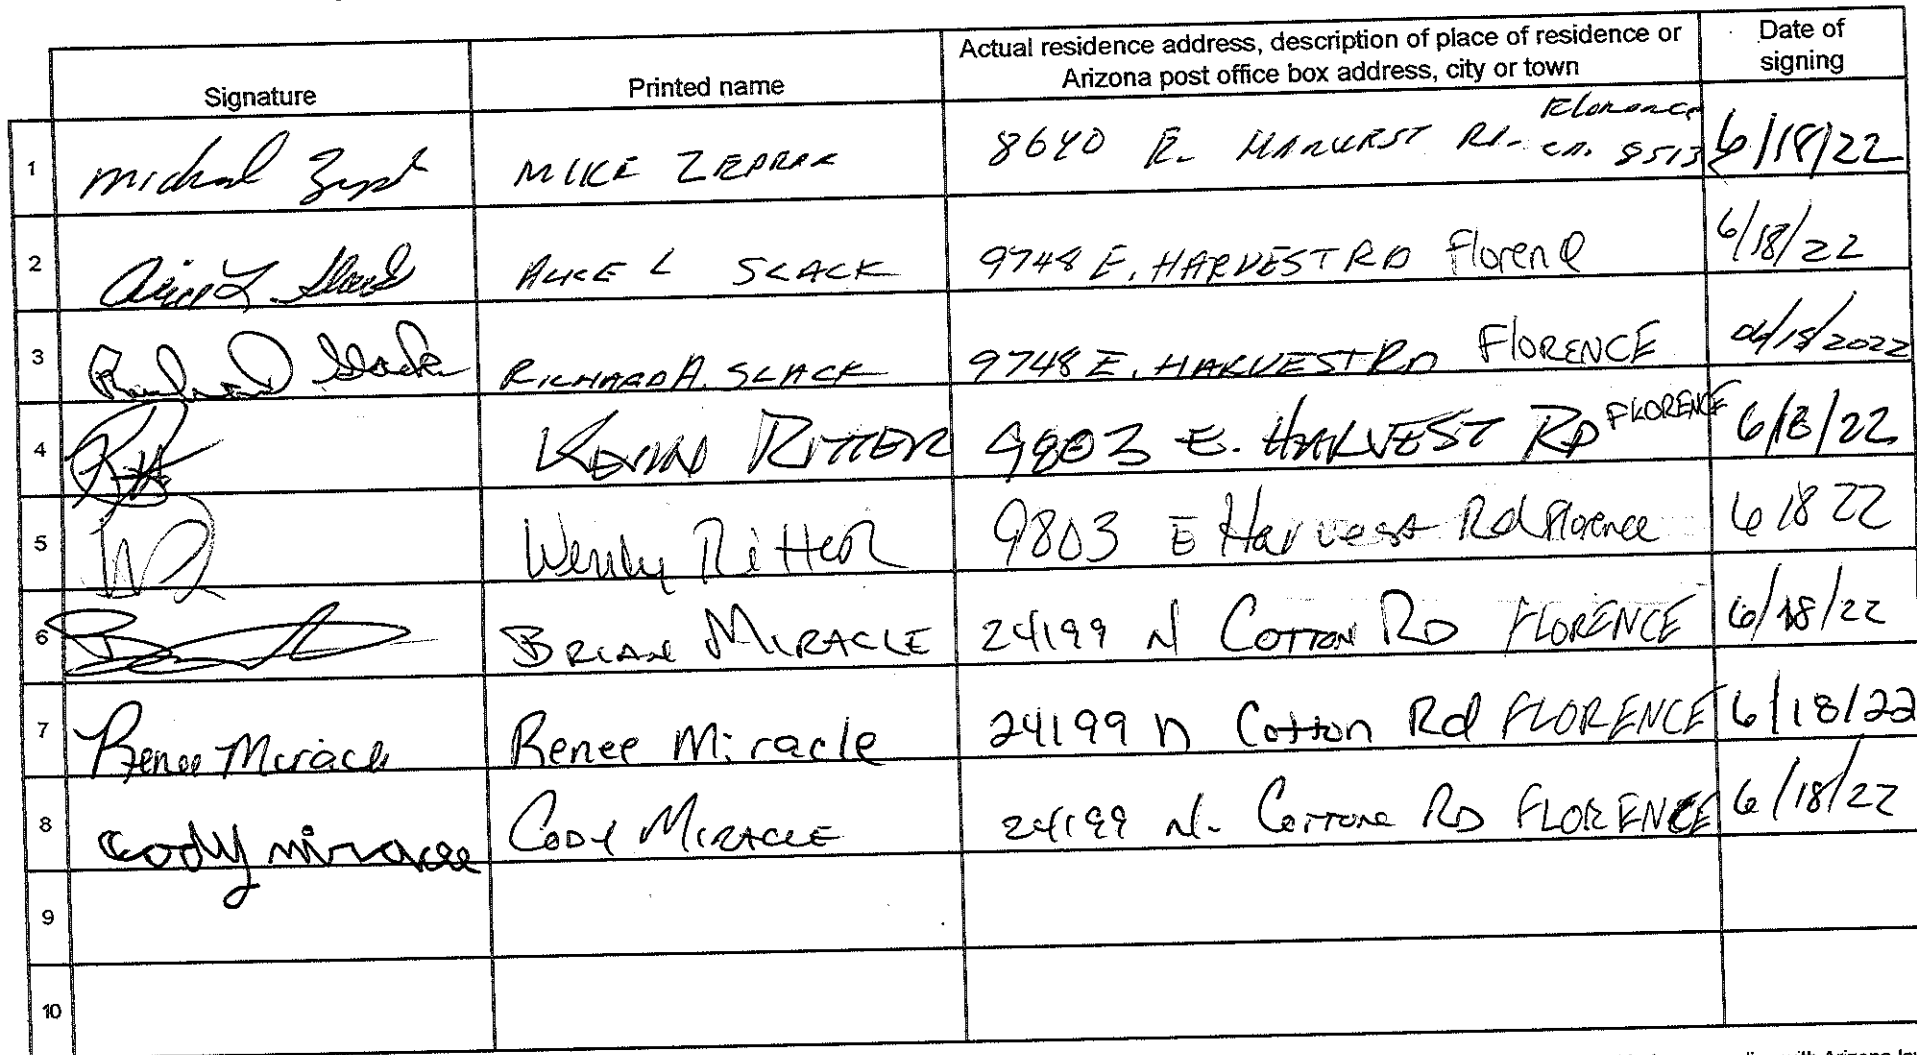 Signature Printed name Actual residence address, description of place of residence or Arizona post office box address, city or town Date of signing
1 MIKE 8640 E. Florence 8513 6/18/22
2 ALICE L SLACK 9748 E. HARVEST RD Floren 6/18/22
3 Richard Slack RICHARD A. SLACK 9748 E. HARVEST RD FLORENCE 06/18/2022
4 KEVIN RITTER 9803 E. HARVEST RD FLORENCE 6/18/22
5 Wendy Ritter 9803 E Harvest Rd Florence 6 18 22
6 BRIAN MIRACLE 24199 N COTTON RD FLORENCE 6/18/22
7 Renee Miracle Renee Miracle 24199 N Cotton Rd FLORENCE 6/18/22
8 Cody miracle CODY MIRACLE 24199 N. RD FLORENCE 6/18/22
9
10
with Arizona